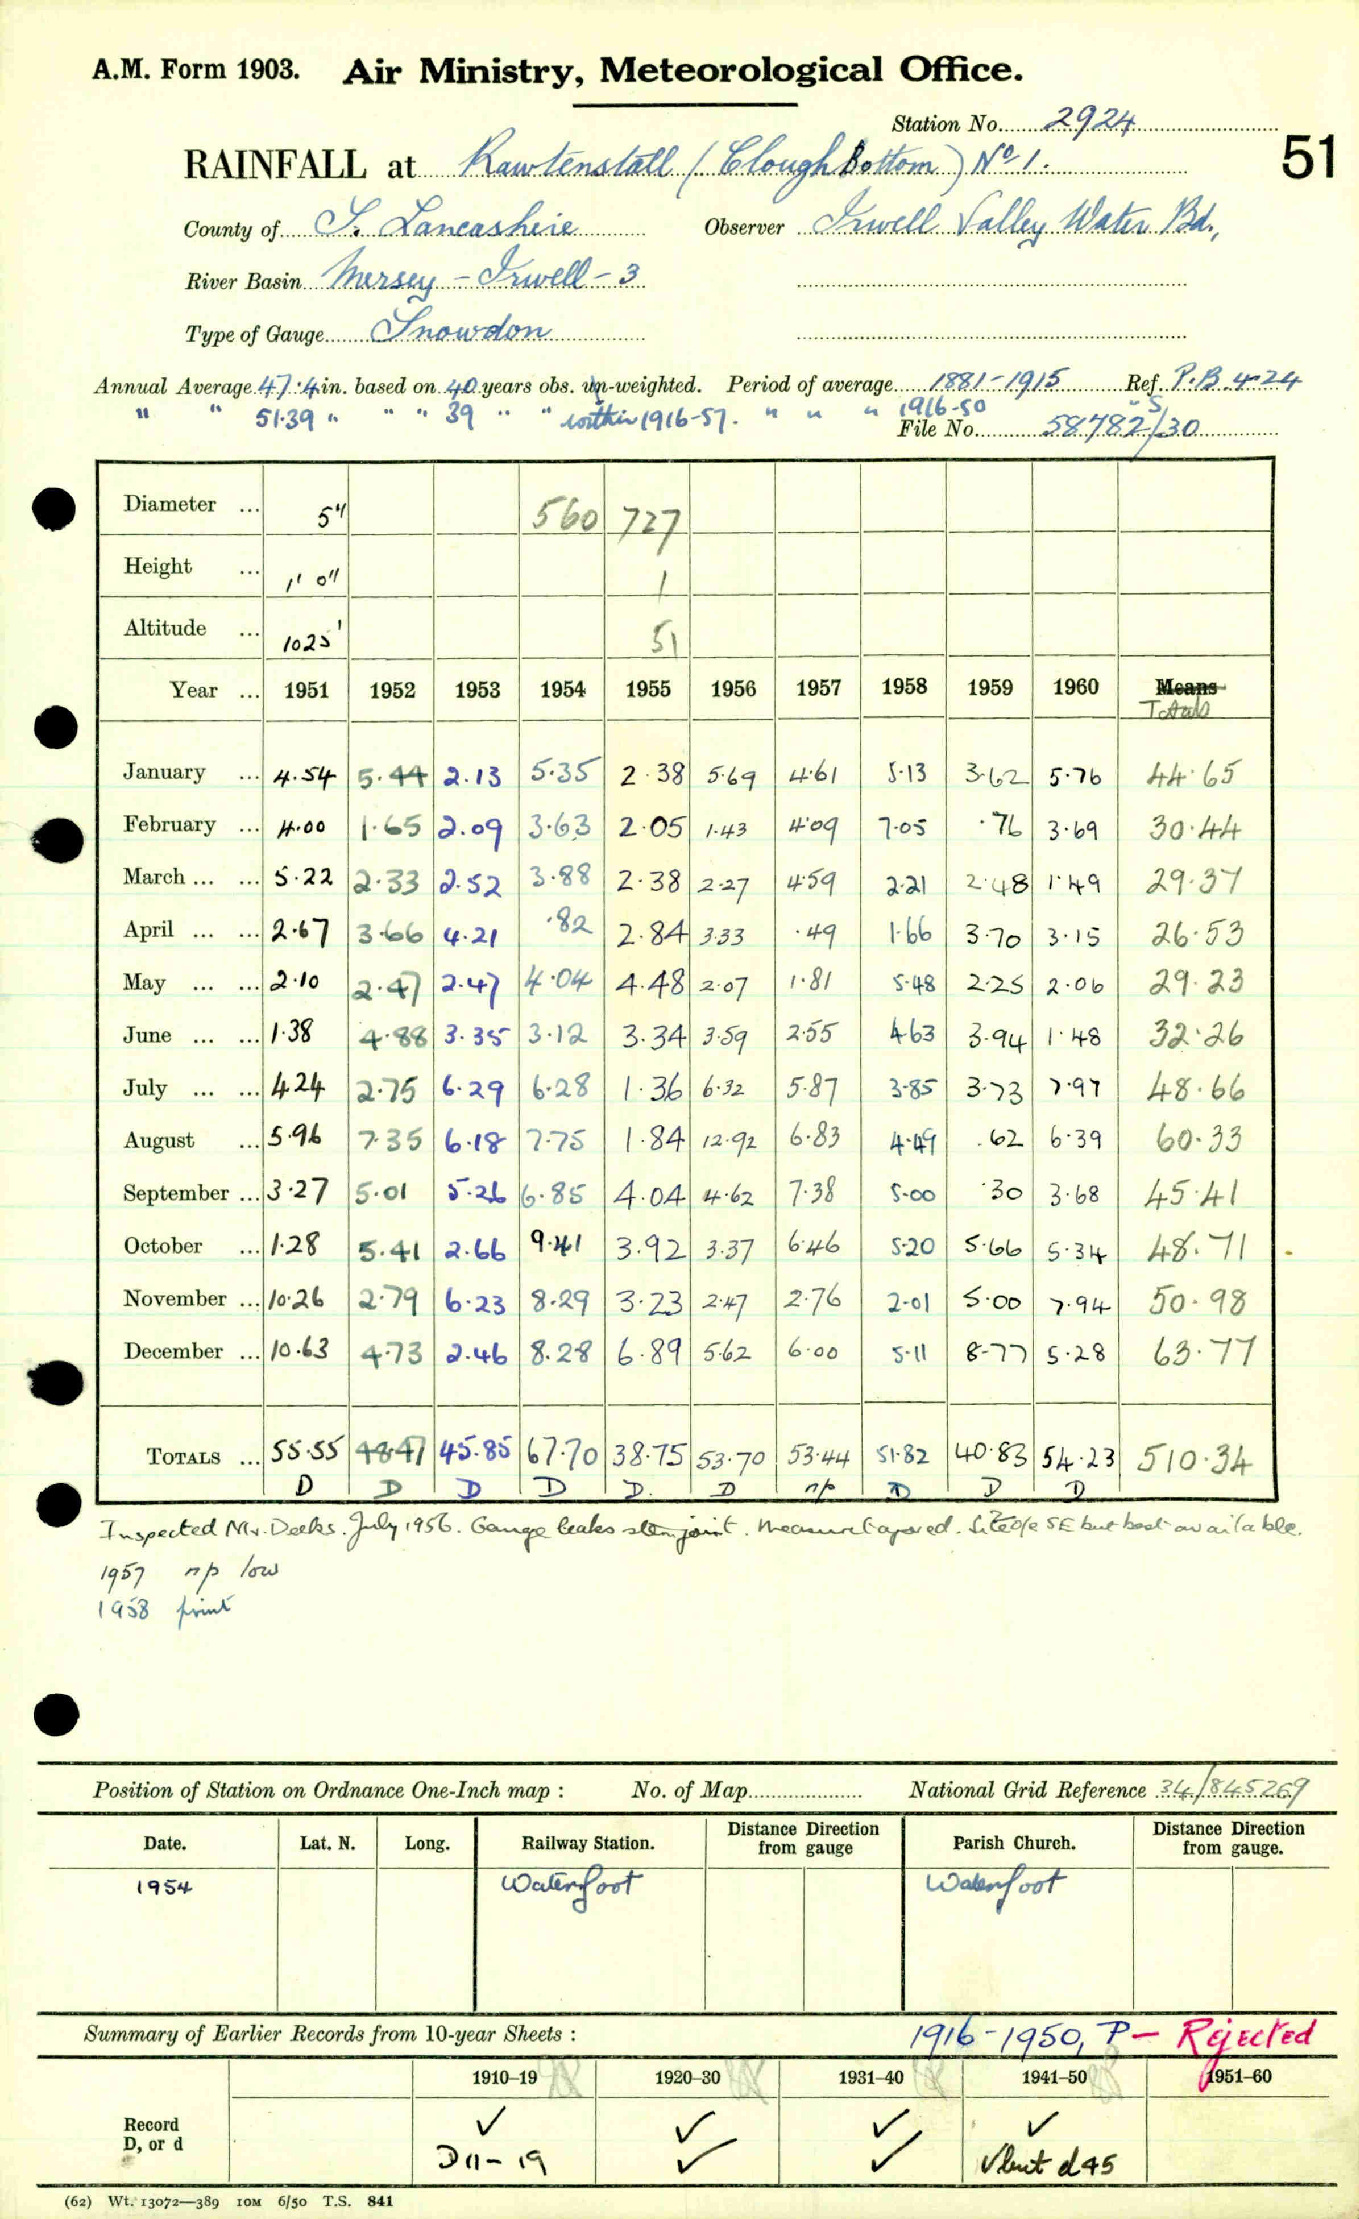 A.M. Form 1903. Air Ministry, Meteorological Office.
Station No. 2924
51
RAINFALL at Rawtenstall (Clough Bottom) No 1.
County of S. Lancashire Observer Irwell Valley Water Bd.,
River Basin Mersey - Irwell - 3
Type of Gauge Snowdon
Annual Average 47.4 in. based on 40 years obs. un-weighted. Period of average 1881-1915 Ref. P.B. 4-24
" " 51.39 " " " 39 " " within 1916-57. " " " 1916-50 " S
File No. 58782/30
Diameter ... 5" 560 727
Height ... 1' 0" 1
Altitude ... 1025' 51
Year ... 1951 1952 1953 1954 1955 1956 1957 1958 1959 1960 Means
Totals
January ... 4.54 5.44 2.13 5.35 2.38 5.69 4.61 5.13 3.62 5.76 44.65
February ... 4.00 1.65 2.09 3.63 2.05 1.43 4.09 7.05 .76 3.69 30.44
March ... ... 5.22 2.33 2.52 3.88 2.38 2.27 4.59 2.21 2.48 1.49 29.37
April ... ... 2.67 3.66 4.21 .82 2.84 3.33 .49 1.66 3.70 3.15 26.53
May ... ... 2.10 2.47 2.47 4.04 4.48 2.07 1.81 5.48 2.25 2.06 29.23
June ... ... 1.38 4.88 3.35 3.12 3.34 3.59 2.55 4.63 3.94 1.48 32.26
July ... ... 4.24 2.75 6.29 6.28 1.36 6.32 5.87 3.85 3.73 7.97 48.66
August ... 5.96 7.35 6.18 7.75 1.84 12.92 6.83 4.49 .62 6.39 60.33
September ... 3.27 5.01 5.26 6.85 4.04 4.62 7.38 5.00 .30 3.68 45.41
October ... 1.28 5.41 2.66 9.41 3.92 3.37 6.46 5.20 5.66 5.34 48.71
November ... 10.26 2.79 6.23 8.29 3.23 2.47 2.76 2.01 5.00 7.94 50.98
December ... 10.63 4.73 2.46 8.28 6.89 5.62 6.00 5.11 8.77 5.28 63.77
TOTALS ... 55.55 48.47 45.85 67.70 38.75 53.70 53.44 51.82 40.83 54.23 510.34
D D D D D. D np D D D
Inspected Mr. Deeks. July 1956. Gauge leaks stem joint. Measure tapered. Site o/e SE but best available.
1957 np low
1958 print
Position of Station on Ordnance One-Inch map : No. of Map National Grid Reference 34/845269
Date. Lat. N. Long. Railway Station. Distance from Direction gauge Parish Church. Distance from Direction gauge.
1954 Waterfoot Waterfoot
Summary of Earlier Records from 10-year Sheets : 1916-1950, P - Rejected
1910–19 1920–30 1931–40 1941–50 1951–60
Record ✓ ✓ ✓ ✓
D, or d D 11-19 ✓ ✓ ✓ but d 45
(62) Wt. 13072—389 10M 6/50 T.S. 841